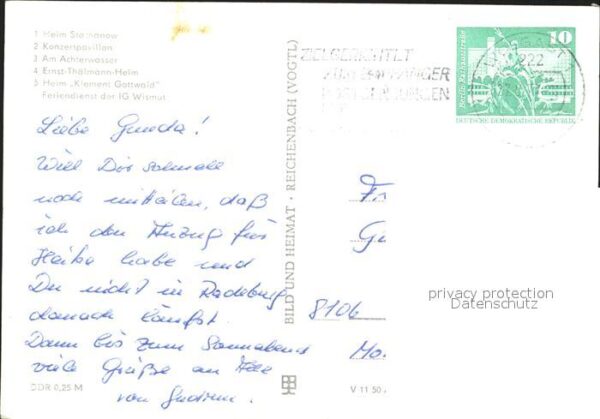 1 Heim Stachanow
2 Konzertpavillon
3 Am Achterwasser
4 Ernst-Thälmann-Heim
5 Heim „Klement Gottwald"
Feriendienst der IG Wismut
Liebe Gunda!
Will Dir schnell
noch mitteilen, daß
ich den Anzug für
Heike habe und
Du nicht in Radeburg
danach läufst.
Dann bis zum Sonnabend
viele Grüße an Alle
von Gudrun.
DDR 0,25 M
BILD UND HEIMAT · REICHENBACH (VOGTL)
V 11 50
ZIELGERICHTET
222
10
DEUTSCHE DEMOKRATISCHE REPUBLIK
Fr
8106
privacy protection
Datenschutz